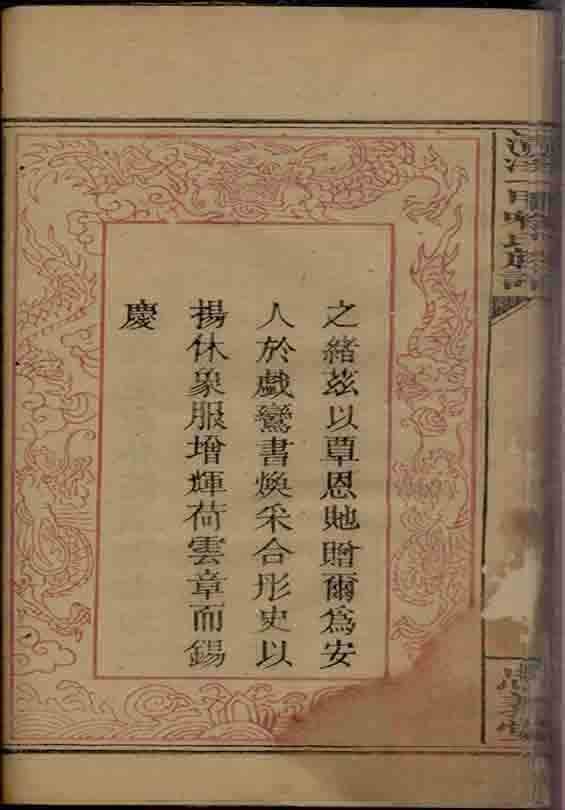 之緒茲以覃恩貤贈爾爲安
人於戱鸞書煥采合彤史以
揚休象服增輝荷雲章而錫
慶